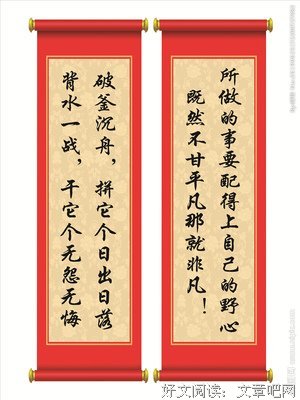 所做的事要配得上自己的野心
既然不甘平凡那就非凡！
破釜沉舟，拼它个日出日落
背水一战，干它个无怨无悔
好文阅读：文章吧网